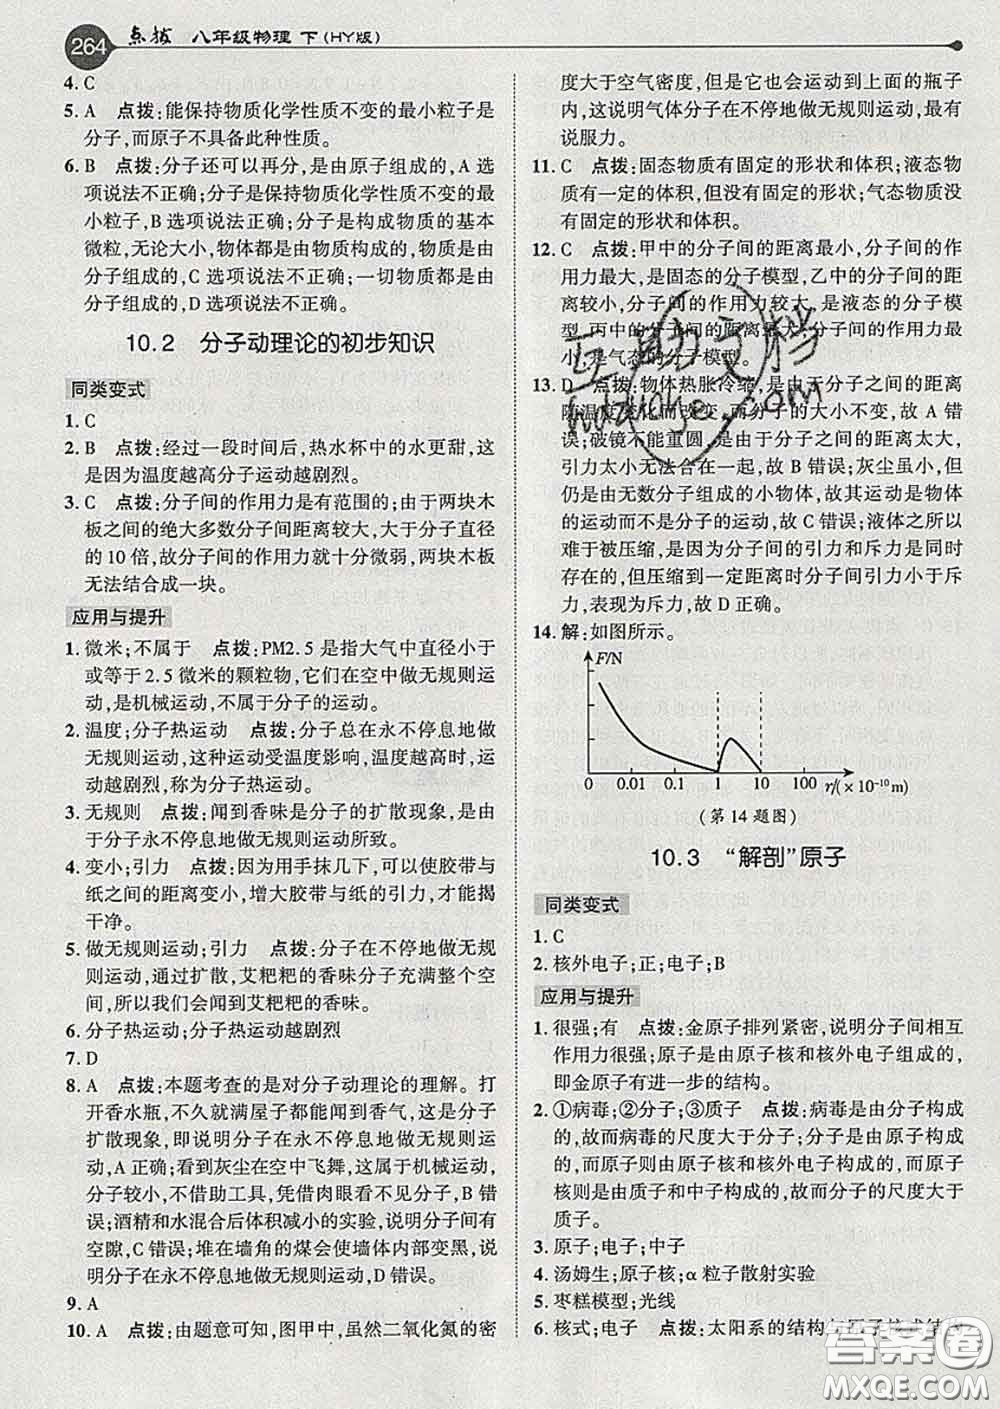 264 点拨 八年级物理 下(HY版)
4. C
5. A 点拨:能保持物质化学性质不变的最小粒子是
分子,而原子不具备此种性质。
6. B 点拨:分子还可以再分,是由原子组成的,A选
项说法不正确;分子是保持物质化学性质不变的最
小粒子,B选项说法正确;分子是构成物质的基本
微粒,无论大小,物体都是由物质构成的,物质是由
分子组成的,C选项说法不正确;一切物质都是由
分子组成的,D选项说法不正确。
10.2 分子动理论的初步知识
同类变式
1. C
2. B 点拨:经过一段时间后,热水杯中的水更甜,这
是因为温度越高分子运动越剧烈。
3. C 点拨:分子间的作用力是有范围的;由于两块木
板之间的绝大多数分子间距离较大,大于分子直径
的10倍,故分子间的作用力就十分微弱,两块木板
无法结合成一块。
应用与提升
1. 微米;不属于 点拨:PM2.5是指大气中直径小于
或等于2.5微米的颗粒物,它们在空中做无规则运
动,是机械运动,不属于分子的运动。
2. 温度;分子热运动 点拨:分子总在永不停息地做
无规则运动,这种运动受温度影响,温度越高时,运
动越剧烈,称为分子热运动。
3. 无规则 点拨:闻到香味是分子的扩散现象,是由
于分子永不停息地做无规则运动所致。
4. 变小;引力 点拨:因为用手抹几下,可以使胶带与
纸之间的距离变小,增大胶带与纸的引力,才能揭
干净。
5. 做无规则运动;引力 点拨:分子在不停地做无规
则运动,通过扩散,艾粑粑的香味分子充满整个空
间,所以我们会闻到艾粑粑的香味。
6. 分子热运动;分子热运动越剧烈
7. D
8. A 点拨:本题考查的是对分子动理论的理解。打
开香水瓶,不久就满屋子都能闻到香气,这是分子
扩散现象,即说明分子在永不停息地做无规则运
动,A正确;看到灰尘在空中飞舞,这属于机械运动,
分子较小,不借助工具,凭借肉眼看不见分子,B错
误;酒精和水混合后体积减小的实验,说明分子间有
空隙,C错误;堆在墙角的煤会使墙体内部变黑,说
明分子在永不停息地做无规则运动,D错误。
9. A
10. A 点拨:由题意可知,图甲中,虽然二氧化氮的密
度大于空气密度,但是它也会运动到上面的瓶子
内,这说明气体分子在不停地做无规则运动,最有
说服力。
11. C 点拨:固态物质有固定的形状和体积;液态物
质有一定的体积,但没有固定的形状;气态物质没
有固定的形状和体积。
12. C 点拨:甲中的分子间的距离最小,分子间的作
用力最大,是固态的分子模型,乙中的分子间的距
离较小,分子间的作用力较大,是液态的分子模
型,丙中的分子间的距离最大,分子间的作用力最
小,是气态的分子模型。
13. D 点拨:物体热胀冷缩,是由于分子之间的距离
随温度变化而改变,而分子的大小不变,故A错
误;破镜不能重圆,是由于分子之间的距离太大,
引力太小无法合在一起,故B错误;灰尘虽小,但
仍是由无数分子组成的小物体,故其运动是物体
的运动而不是分子的运动,故C错误;液体之所以
难于被压缩,是分子间的引力和斥力是同时
存在的,但压缩到一定距离时分子间引力小于斥
力,表现为斥力,故D正确。
14. 解:如图所示。
F/N
0 0.01 0.1 1 10 100 r/(×10⁻¹⁰m)
(第14题图)
10.3 “解剖”原子
同类变式
1. C
2. 核外电子;正;电子;B
应用与提升
1. 很强;有 点拨:金原子排列紧密,说明分子间相互
作用力很强;原子是由原子核和核外电子组成的,
即金原子有进一步的结构。
2. ①病毒;②分子;③质子 点拨:病毒是由分子构成
的,故而病毒的尺度大于分子;分子是由原子构成
的,而原子则由原子核和核外电子构成的,而原子
核是由质子和中子构成的,故而分子的尺度大于
质子。
3. 原子;电子;中子
4. 汤姆生;原子核;α粒子散射实验
5. 枣糕模型;光线
6. 核式;电子 点拨:太阳系的结构与原子核式结
互助文档
hdzuoye.com
答案圈
MXQE.COM